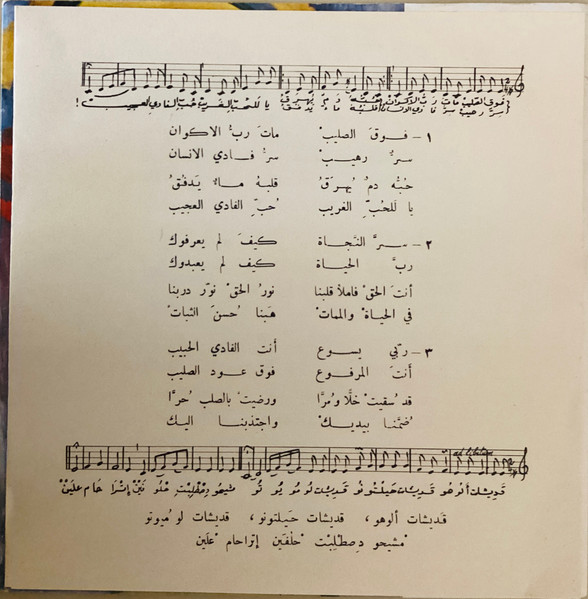 { فوق الصليب مات ربّ الأكوان حبّه دم يهرق يا للحبّ الغريب حبّ الفادي العجيب !
{ سرّ رهيب سرّ فادي الإنسان قلبه ماء يدفق
١ – فوق الصليبْ    ماتَ ربُّ الاكوان
سرٌّ رهيبْ    سرُّ فادي الانسان
حُبُّه دمٌ يُهرَقُ    قلبهُ ماءٌ يَدفُقُ
يا لَلحُبِّ الغريب    حُبِّ الفادي العجيب
٢ – سرَّ النَجاة    كيفَ لم يعرفوك
ربَّ الحياة    كيف لم يعبدوك
أنتَ الحقْ فاملأ قلبنا    نورُ الحقْ نوّر دربنا
في الحياةْ والمماتْ    هَبنا حُسنَ الثباتْ
٣ – ربّي يسوع    أنت الفادي الحبيب
أنتَ المرفوع    فوق عود الصليب
قد سُقيتْ خلًّا ومُرًّا    ورضيتْ بالصلب حُرًّا
ضُمّنا بيديكْ    واجتذبنا اليك
ad libitum
قديشات ألوهو قديشات حيلتونو قديشات لو مو يو تو مشيحو دصطلبت حلو فين إتراحام علين
قَديشات ألوهو، قديشات حَيلتونو، قديشات لو مُيوتو
مْشيحو دِصطلِبْت حْلُفَين إتراحام عْلَين